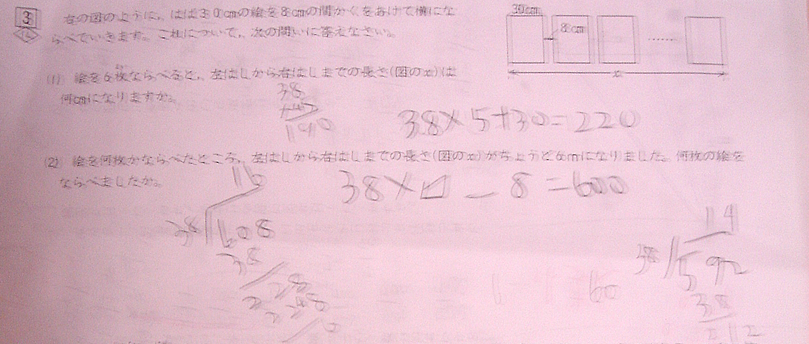 3
右の図のように、はば30cmの絵を8cmの間かくをあけて横にな
らべていきます。これについて、次の問いに答えなさい。
30cm
8cm
x
(1) 絵を6枚ならべると、左はしから右はしまでの長さ(図のx)は
何cmになりますか。
38
190
38×5+30=220
(2) 絵を何枚かならべたところ、左はしから右はしまでの長さ(図のx)がちょうど6mになりました。何枚の絵を
ならべましたか。
38×□-8=600
16
38 608
38
228
228
0
38 592
60